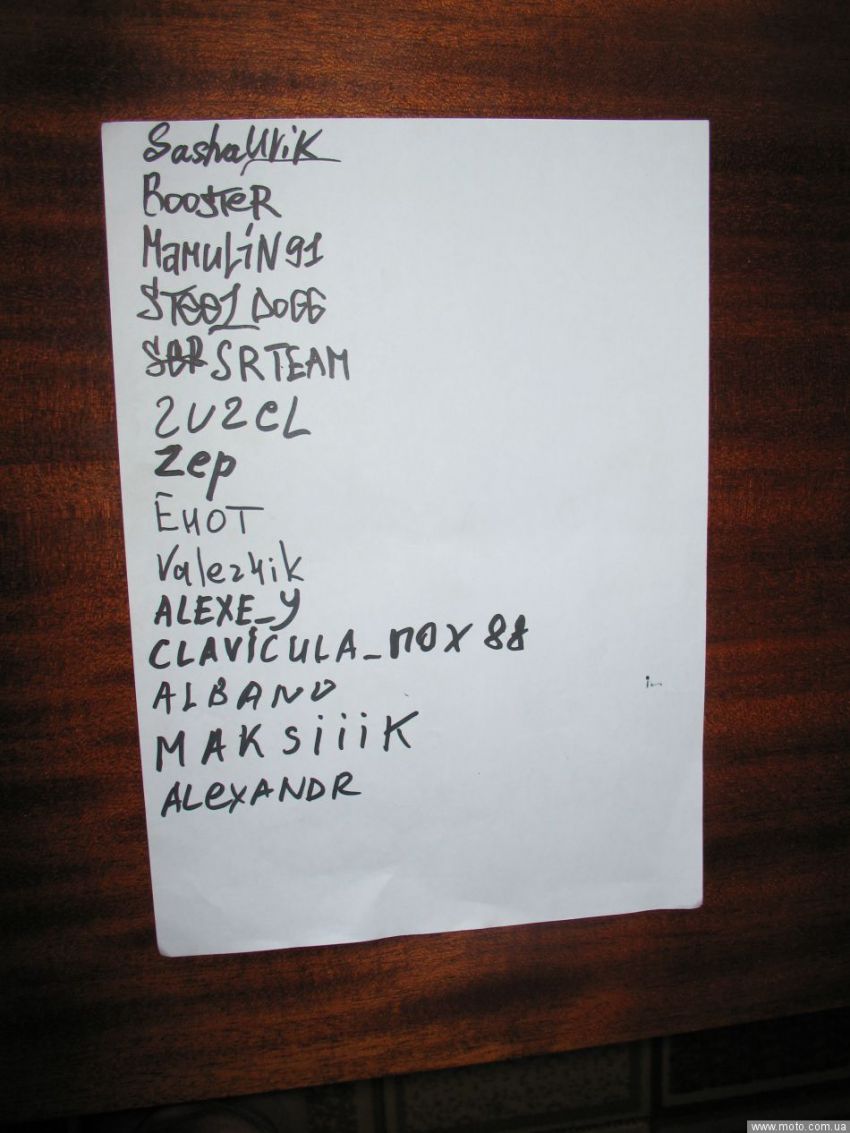 SashaUriK
RoosTeR
MaMuLiN91
STeelDOGG
SRTEAM
ZUZeL
Zep
ЕнОТ
Valez4ik
ALEXE_Y
CLAViCULA_nox88
ALBANO
MAKSiiiK
ALexANDR
www.moto.com.ua